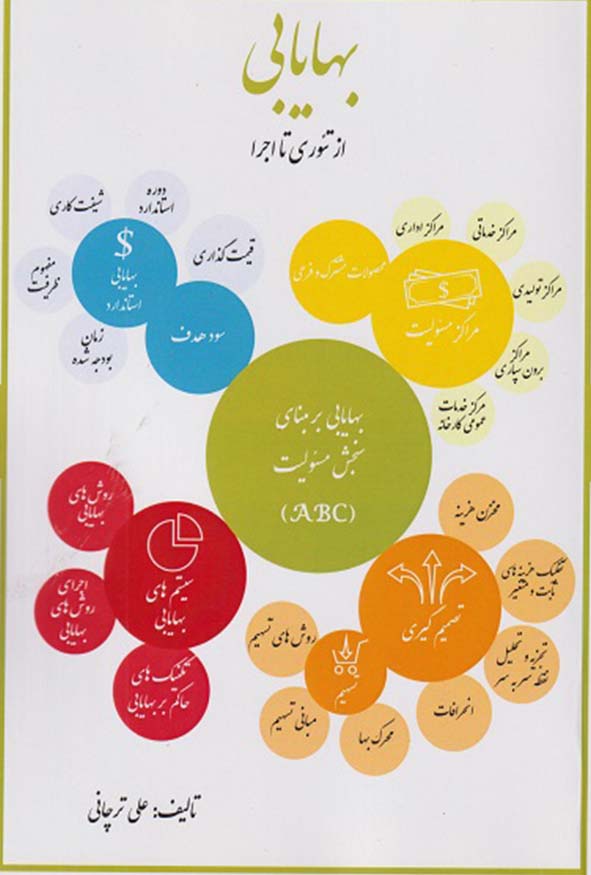 بهایابی
از تئوری تا اجرا
مراکز اداری
مراکز خدماتی
محصولات مشترک و فرعی
مراکز تولیدی
$
مراکز مسئولیت
مراکز
برون سپاری
مرکز خدمات
عمومی کارخانه
دوره
استاندارد
شیفت کاری
$
بهایابی
استاندارد
قیمت گذاری
مفهوم
ظرفیت
سود هدف
زمان
بودجه شده
بهایابی بر مبنای
سنجش مسئولیت
(ABC)
روش های
بهایابی
سیستم های
بهایابی
اجرای
روش های
بهایابی
تکنیک های
حاکم بر بهایابی
مخزن هزینه
تفکیک هزینه های
ثابت و متغیر
تصمیم گیری
تجزیه و تحلیل
نقطه سر به سر
روش های تسهیم
تسهیم
انحرافات
مبانی تسهیم
محرک بها
تالیف: علی ترچانی